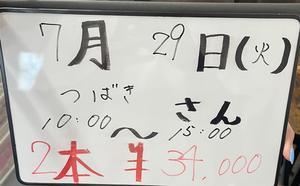 7月 29日(火)
つばき さん
10:00 〜 15:00
2本 ¥34,000